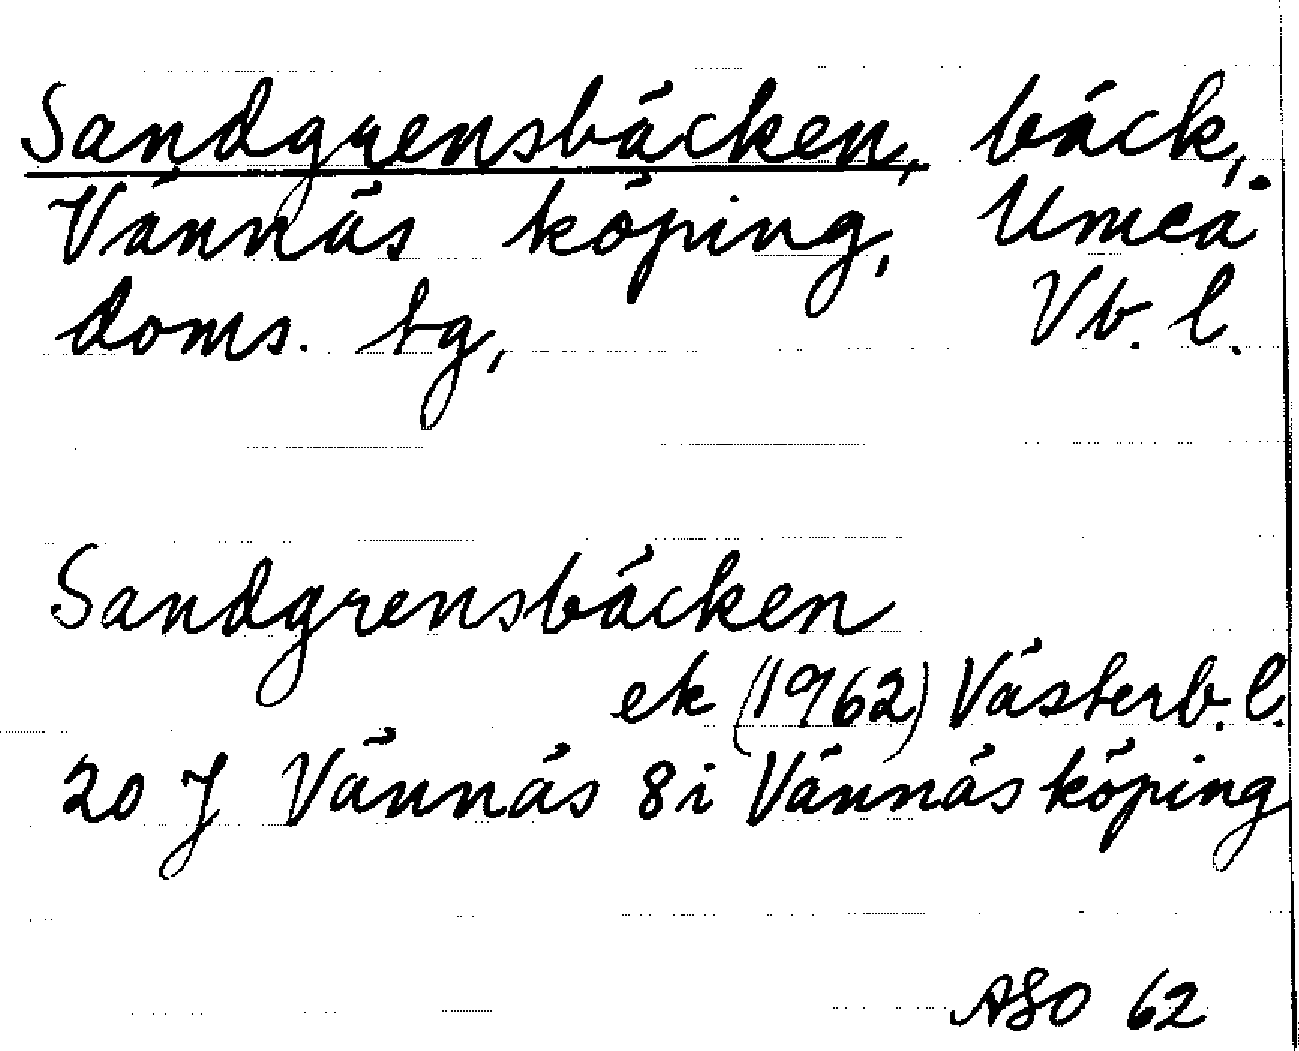 Sandgrensbäcken, bäck,
Vännäs köping, Umeå
doms. tg, Vb. l.
Sandgrensbäcken
ek (1962) Västerb. l.
20 J Vännäs 8i Vännäs köping
ASO 62